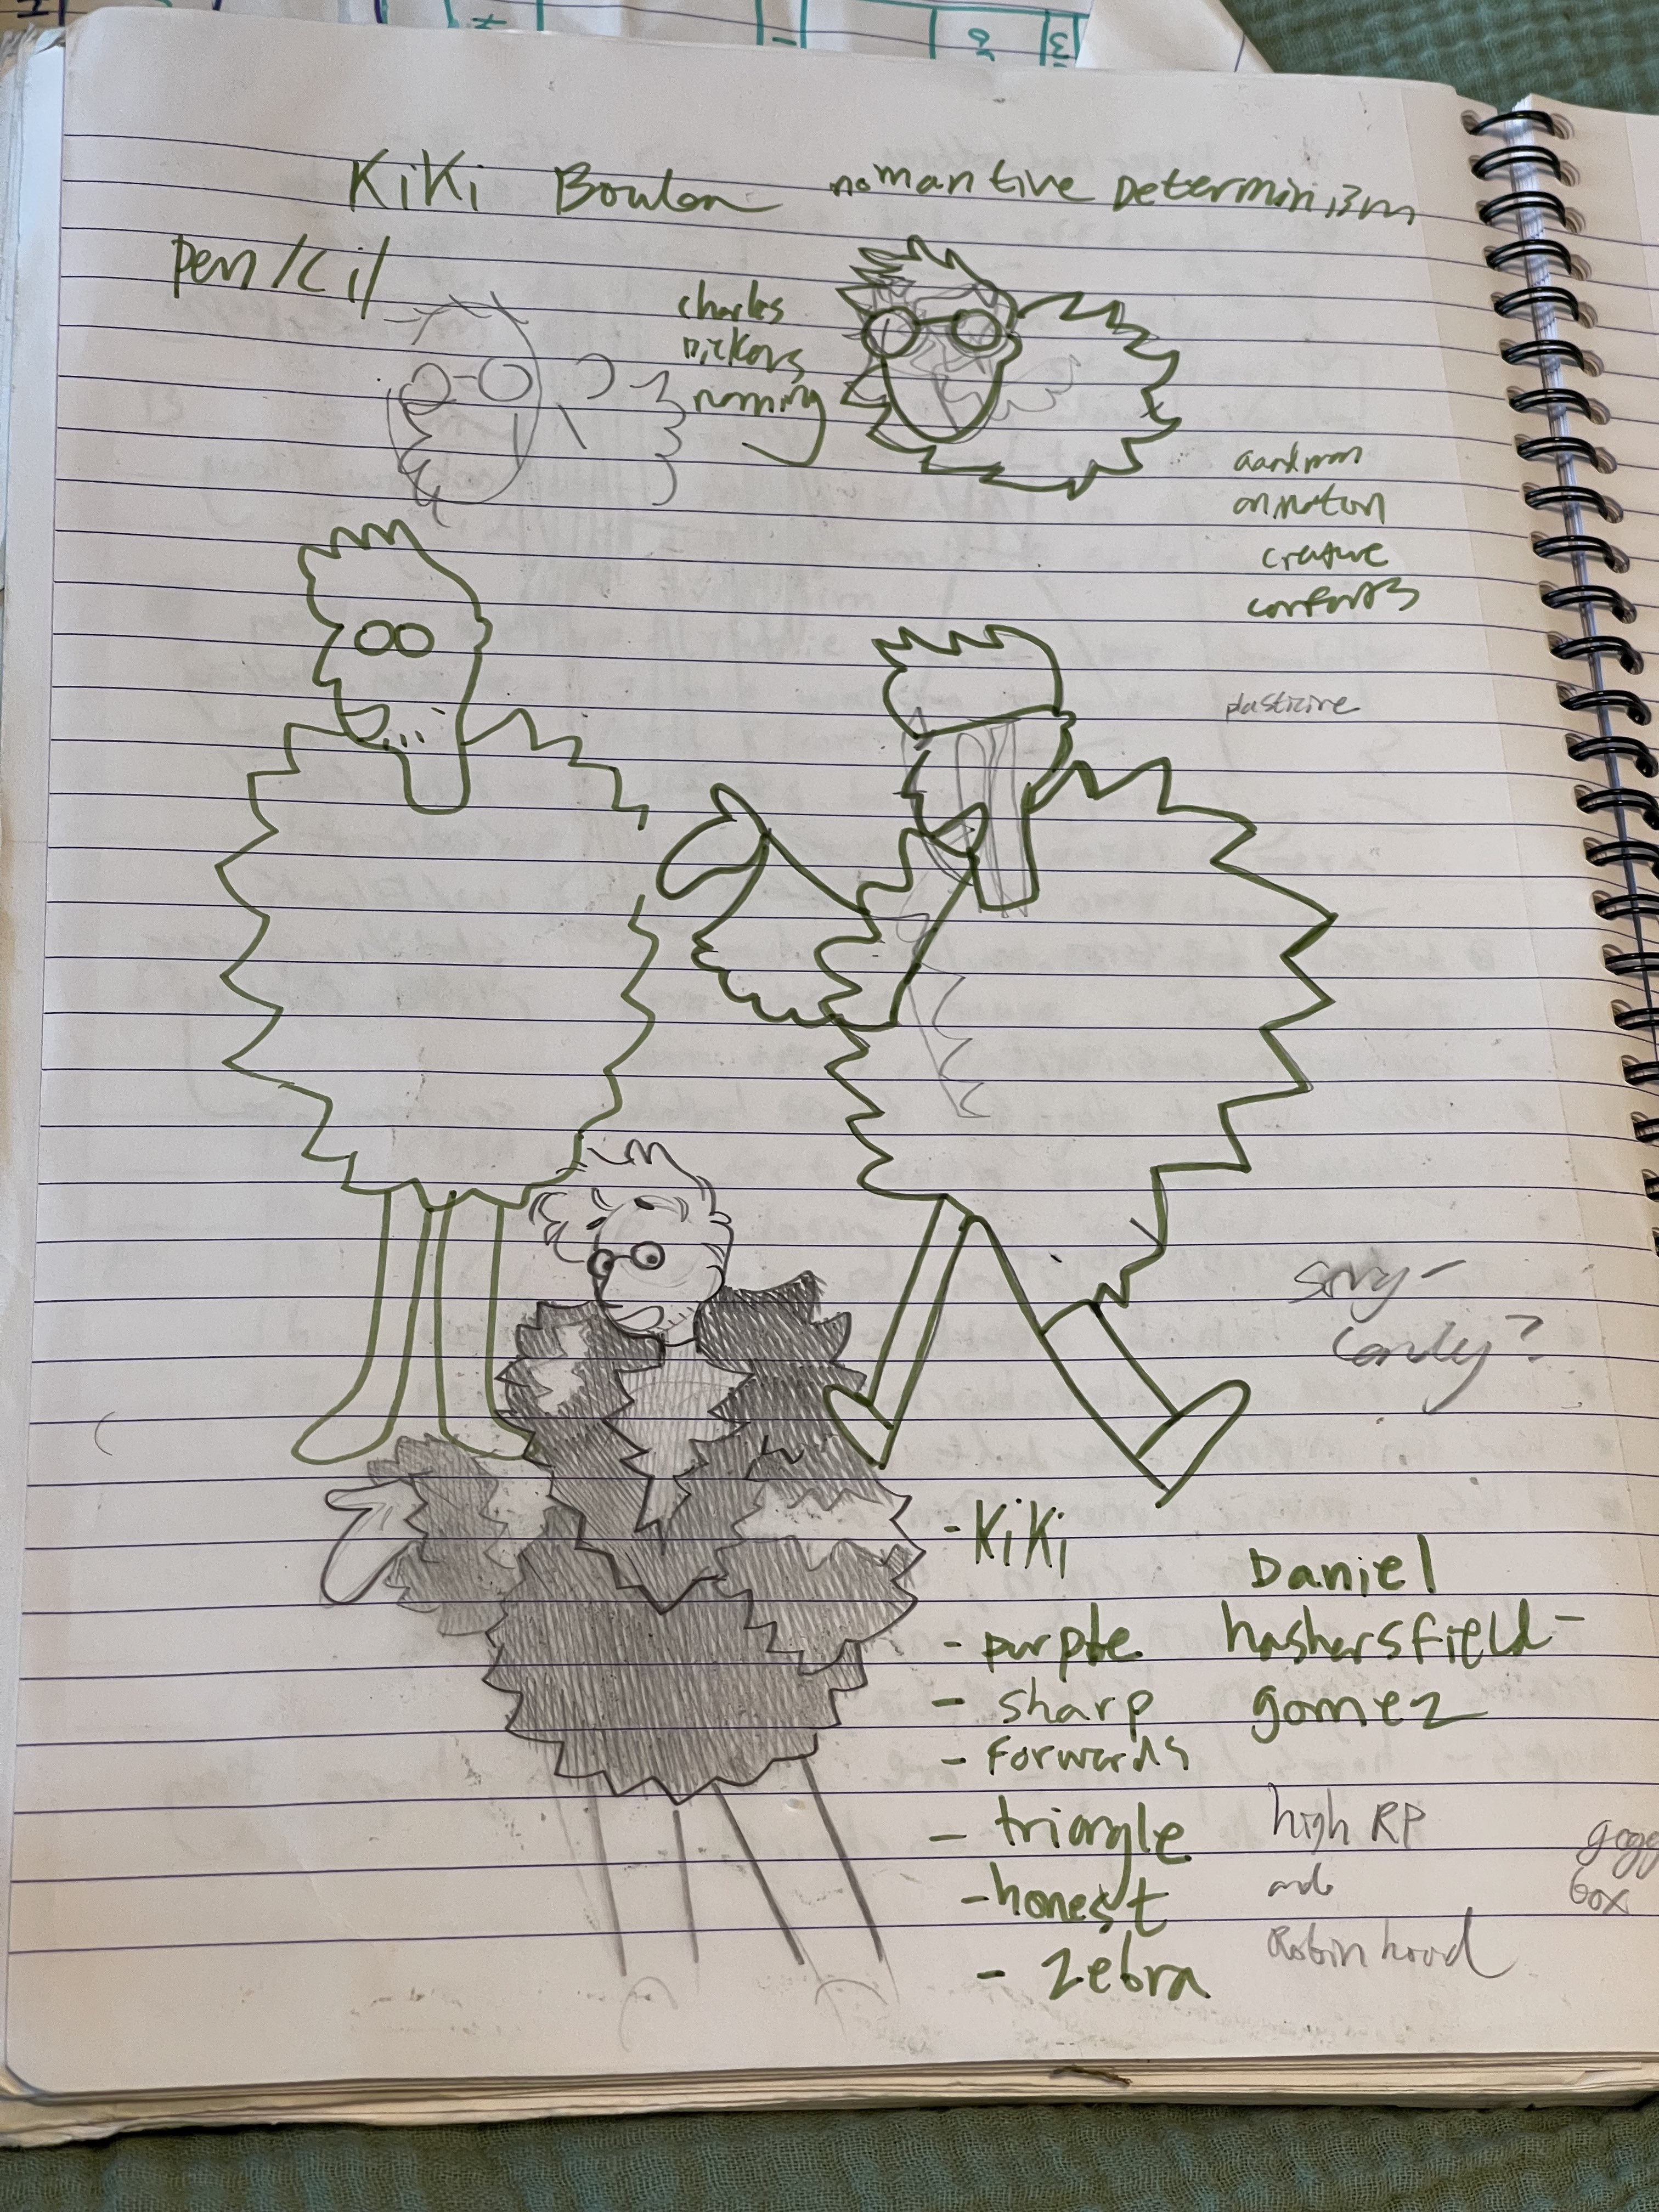 KiKi Bouba nomantive Determinism
Pen/Cil
charles
Dickens
naming
aardman
animation
creature
comforts
plasticine
- KiKi
- purple
- sharp
- forwards
- triangle
- honest
- zebra
Daniel
hashersfield-
gomez
high RP
Robin hood
box